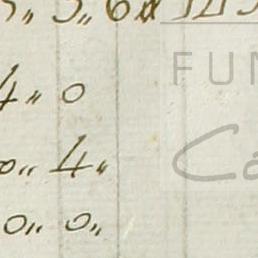 5〃 6〃
4〃 0
0〃 4〃
0〃 0〃
FUN
Ca